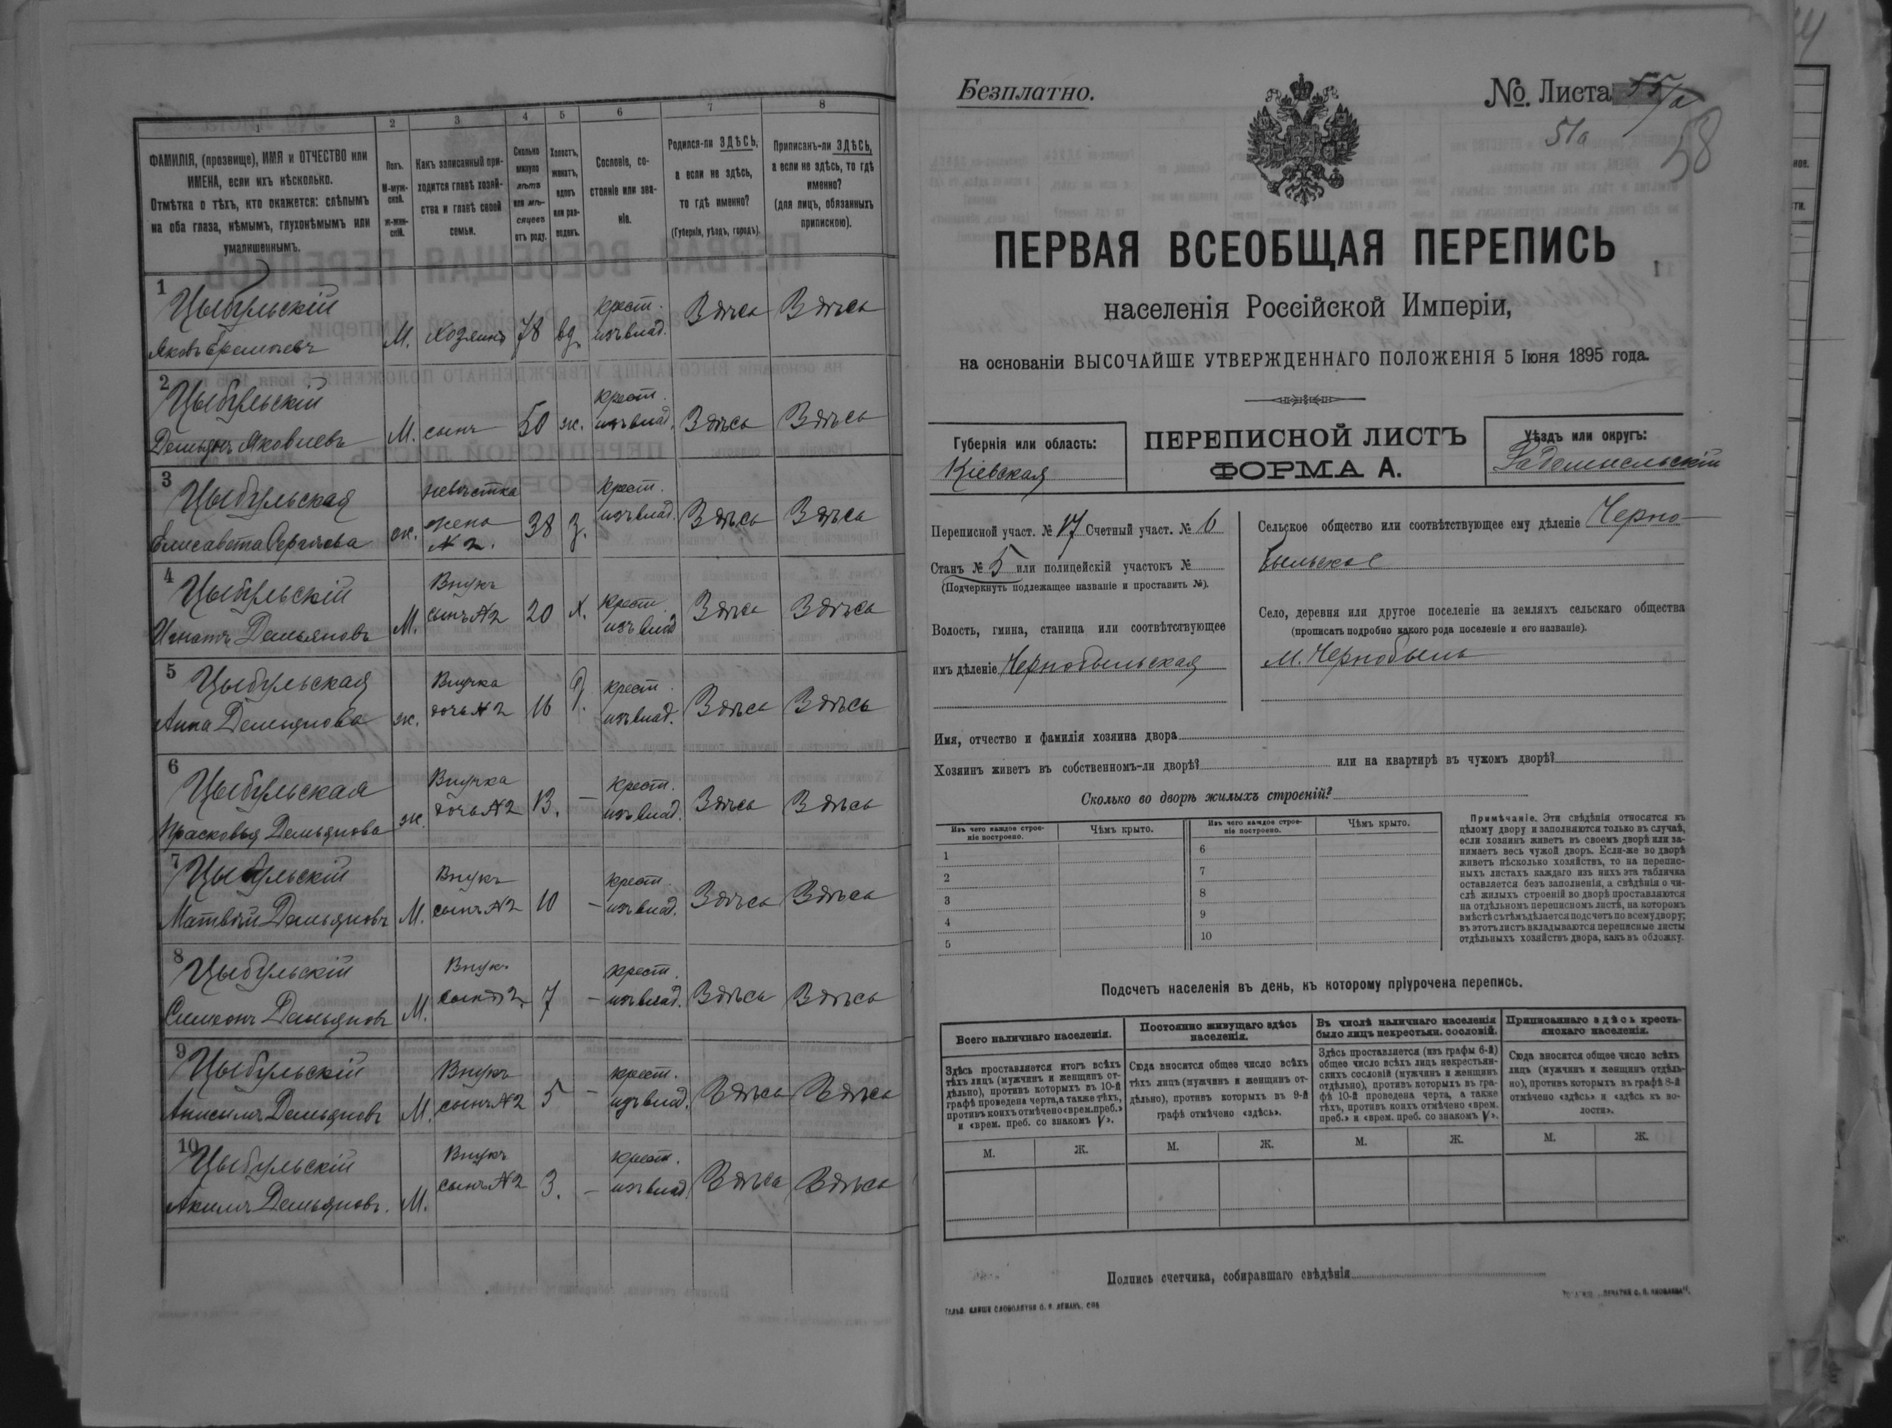 1
2
3
4
5
6
7
8
ФАМИЛІЯ, (прозвище), ИМЯ и ОТЧЕСТВО или
ИМЕНА, если ихъ нѣсколько.
Отмѣтка о тѣхъ, кто окажется: слѣпымъ
на оба глаза, нѣмымъ, глухонѣмымъ или
умалишеннымъ.
Полъ.
М-муж-
ской.
ж-жен-
скій.
Какъ записанный при-
ходится главѣ хозяй-
ства и главѣ своей
семьи.
Сколько
минуло
лѣтъ
или мѣ-
сяцевъ
отъ роду.
Холостъ,
женатъ,
вдовъ
или раз-
веденъ.
Сословіе, со-
стояніе или зва-
ніе.
Родился-ли ЗДѢСЬ,
а если не здѣсь,
то гдѣ именно?
(Губернія, уѣздъ, городъ).
Приписанъ-ли ЗДѢСЬ,
а если не здѣсь, то гдѣ
именно?
(для лицъ, обязанныхъ
припискою).
1
Цыбульскій
Яковъ Еремѣевъ
М.
Хозяинъ
78
вд.
крест.
изъ влад.
Здѣсь
Здѣсь
2
Цыбульскій
Демьянъ Яковлевъ
М.
сынъ
50
ж.
крест.
изъ влад.
Здѣсь
Здѣсь
3
Цыбульская
Елисавета Сергѣева
ж.
невѣстка
жена
№ 2.
38
з.
крест.
изъ влад.
Здѣсь
Здѣсь
4
Цыбульскій
Игнатъ Демьяновъ
М.
Внукъ
сынъ №2
20
х.
крест.
изъ влад
Здѣсь
Здѣсь
5
Цыбульская
Анна Демьянова
ж.
Внучка
дочь №2
16
д.
крест.
изъ влад.
Здѣсь
Здѣсь
6
Цыбульская
Прасковья Демьянова
ж.
Внучка
дочь №2
13.
–
крест.
изъ влад.
Здѣсь
Здѣсь
7
Цыбульскій
Матвѣй Демьяновъ
М.
Внукъ
сынъ №2
10
–
крест.
изъ влад.
Здѣсь
Здѣсь
8
Цыбульскій
Симеонъ Демьяновъ
М.
Внукъ
сынъ №2
7
–
крест.
изъ влад.
Здѣсь
Здѣсь
9
Цыбульскій
Анисимъ Демьяновъ
М.
Внукъ
сынъ №2
5
–
крест.
изъ влад.
Здѣсь
Здѣсь
10
Цыбульскій
Акимъ Демьяновъ.
М.
Внукъ
сынъ №2
3.
–
крест.
изъ влад
Здѣсь
Здѣсь
Безплатно.
№. Листа 55/а
51а
58
ПЕРВАЯ ВСЕОБЩАЯ ПЕРЕПИСЬ
населенія Россійской Имперіи,
на основаніи ВЫСОЧАЙШЕ УТВЕРЖДЕННАГО ПОЛОЖЕНІЯ 5 Іюня 1895 года.
Губернія или область:
Кіевская
ПЕРЕПИСНОЙ ЛИСТЪ
ФОРМА А.
Уѣздъ или округъ:
Радомысльскій
Переписной участ. № 17 Счетный участ. № 6
Станъ № 5 или полицейскій участокъ №
(Подчеркнуть подлежащее названіе и проставить №).
Волость, гмина, станица или соотвѣтствующее
имъ дѣленіе Чернобыльская
Сельское общество или соотвѣтствующее ему дѣленіе Черно-
быльское
Село, деревня или другое поселеніе на земляхъ сельскаго общества
(прописать подробно какого рода поселеніе и его названіе).
М. Чернобыль
Имя, отчество и фамилія хозяина двора
Хозяинъ живетъ въ собственномъ-ли дворѣ? или на квартирѣ въ чужомъ дворѣ?
Сколько во дворѣ жилыхъ строеній?
Изъ чего каждое строе-
ніе построено.
Чѣмъ крыто.
Изъ чего каждое строе-
ніе построено.
Чѣмъ крыто.
1
2
3
4
5
6
7
8
9
10
Примѣчаніе. Эти свѣдѣнія относятся къ
цѣлому двору и заполняются только въ случаѣ,
если хозяинъ живетъ въ своемъ дворѣ или за-
нимаетъ весь чужой дворъ. Если-же во дворѣ
живетъ нѣсколько хозяйствъ, то на перепис-
ныхъ листахъ каждаго изъ нихъ эта табличка
оставляется безъ заполненія, а свѣдѣнія о чи-
слѣ жилыхъ строеній во дворѣ проставляются
на отдѣльномъ переписномъ листѣ, на которомъ
вмѣстѣ съ тѣмъ дѣлается подсчетъ по всему двору;
въ этотъ листъ вкладываются переписные листы
отдѣльныхъ хозяйствъ двора, какъ въ обложку.
Подсчетъ населенія въ день, къ которому пріурочена перепись.
Всего наличнаго населенія.
Здѣсь проставляется итогъ всѣхъ
тѣхъ лицъ (мужчинъ и женщинъ от-
дѣльно), противъ которыхъ въ 10-й
графѣ проведена черта, а также тѣхъ,
противъ коихъ отмѣчено «врем. преб.»
и «врем. преб. со знакомъ V».
М.
Ж.
Постоянно живущаго здѣсь
населенія.
Сюда вносится общее число всѣхъ
тѣхъ лицъ (мужчинъ и женщинъ от-
дѣльно), противъ которыхъ въ 9-й
графѣ отмѣчено «здѣсь».
М.
Ж.
Въ числѣ наличнаго населенія
было лицъ некрестьян. сословій.
Здѣсь проставляется (изъ графы 6-й)
общее число всѣхъ лицъ некрестьян-
скихъ сословій (мужчинъ и женщинъ
отдѣльно), противъ которыхъ въ гра-
фѣ 10-й проведена черта, а также
тѣхъ, противъ коихъ отмѣчено «врем.
преб.» и «врем. преб. со знакомъ V».
М.
Ж.
Приписаннаго здѣсь кресть-
янскаго населенія.
Сюда вносится общее число всѣхъ
лицъ (мужчинъ и женщинъ отдѣль-
но), противъ которыхъ въ графѣ 8-й
отмѣчено «здѣсь» и «здѣсь къ во-
лости».
М.
Ж.
Подпись счетчика, собиравшаго свѣдѣнія